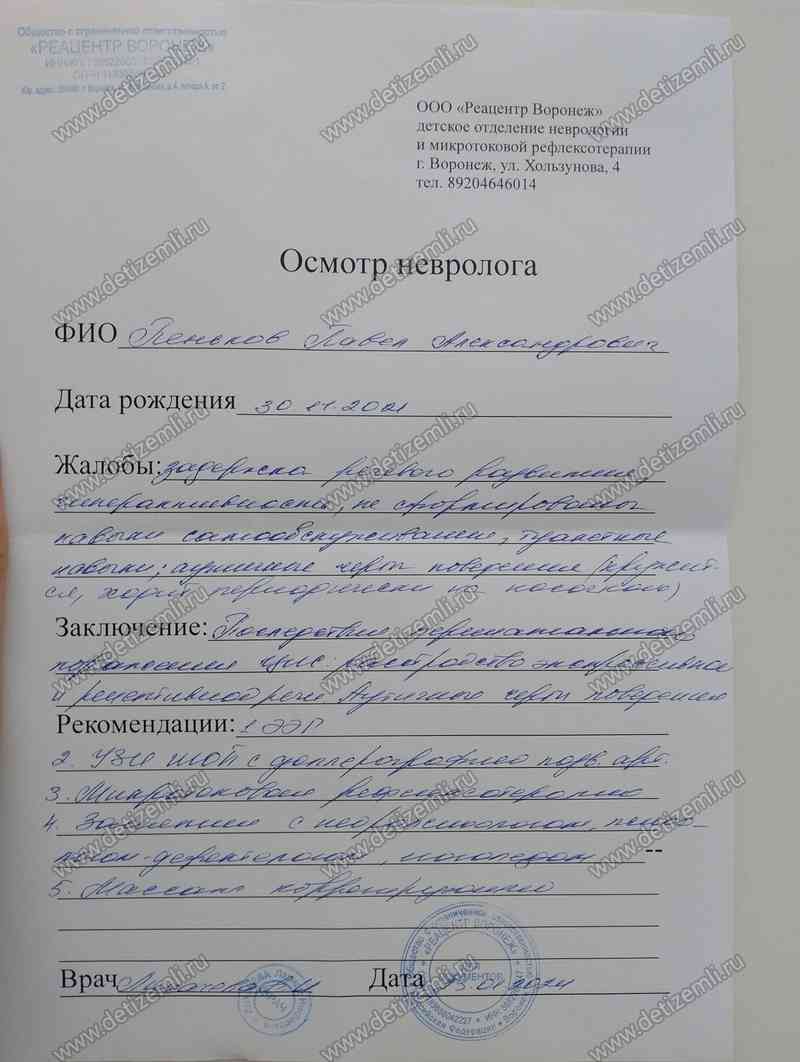 Общество с ограниченной ответственностью
«РЕАЦЕНТР ВОРОНЕЖ»
ООО «Реацентр Воронеж»
детское отделение неврологии
и микротоковой рефлексотерапии
г. Воронеж, ул. Хользунова, 4
тел. 89204646014
Осмотр невролога
ФИО Пеньков Павел Александрович
Дата рождения 30 11.2021
Жалобы: задержка речевого развития,
гиперактивность, не сформированы
навыки самообслуживания, туалетные
навыки; аутичные черты поведения (кружит-
ся, ходит периодически на носочках)
Заключение: Последствия перинатального
поражения ЦНС. Расстройство экспрессивной
и рецептивной речи. Аутичные черты поведения
Рекомендации: 1 ЭЭГ
2. УЗИ ШОП с доплерографией позв. арт.
3. Микротоковая рефлексотерапия
4. Занятия с нейропсихологом,
дефектологом, логопедом
5. Массаж
Врач
Дата 01.2024
www.detizemli.ru